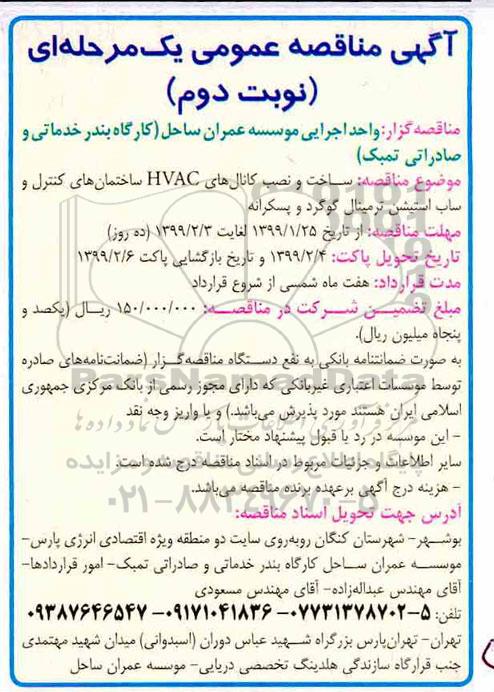 آگهی مناقصه عمومی یک‌مرحله‌ای
(نوبت دوم)
مناقصه‌گزار: واحد اجرایی موسسه عمران ساحل (کارگاه بندر خدماتی و
صادراتی تمبک)
موضوع مناقصه: ساخت و نصب کانال‌های HVAC ساختمان‌های کنترل و
ساب استیشن ترمینال گوگرد و پسکرانه
مهلت مناقصه: از تاریخ ۱۳۹۹/۱/۲۵ لغایت ۱۳۹۹/۲/۳ (ده روز)
تاریخ تحویل پاکت: ۱۳۹۹/۲/۴ و تاریخ بازگشایی پاکت ۱۳۹۹/۲/۶
مدت قرارداد: هفت ماه شمسی از شروع قرارداد
مبلغ تضمین شرکت در مناقصه: ۱۵۰/۰۰۰/۰۰۰ ریال (یکصد و
پنجاه میلیون ریال).
به صورت ضمانتنامه بانکی به نفع دستگاه مناقصه‌گزار (ضمانت‌نامه‌های صادره
توسط موسسات اعتباری غیربانکی که دارای مجوز رسمی از بانک مرکزی جمهوری
اسلامی ایران هستند مورد پذیرش می‌باشد.) و یا واریز وجه نقد
- این موسسه در رد یا قبول پیشنهاد مختار است.
سایر اطلاعات و جزئیات مربوط در اسناد مناقصه درج شده است.
- هزینه درج آگهی برعهده برنده مناقصه می‌باشد.
آدرس جهت تحویل اسناد مناقصه:
بوشهر- شهرستان کنگان روبه‌روی سایت دو منطقه ویژه اقتصادی انرژی پارس-
موسسه عمران ساحل کارگاه بندر خدماتی و صادراتی تمبک- امور قراردادها-
آقای مهندس عبداله‌زاده- آقای مهندس مسعودی
تلفن: ۵-۰۷۷۳۱۳۷۸۷۰۲- ۰۹۱۷۱۰۴۱۸۳۶- ۰۹۳۸۷۶۴۶۵۴۷
تهران- تهران‌پارس بزرگراه شهید عباس دوران (اسبدوانی) میدان شهید مهتمدی
جنب قرارگاه سازندگی هلدینگ تخصصی دریایی- موسسه عمران ساحل
ParsNamadData
پایگاه اطلاع رسانی مناقصه مزایده
۰۲۱-۸۸۳۴۹۶۷۰-۵